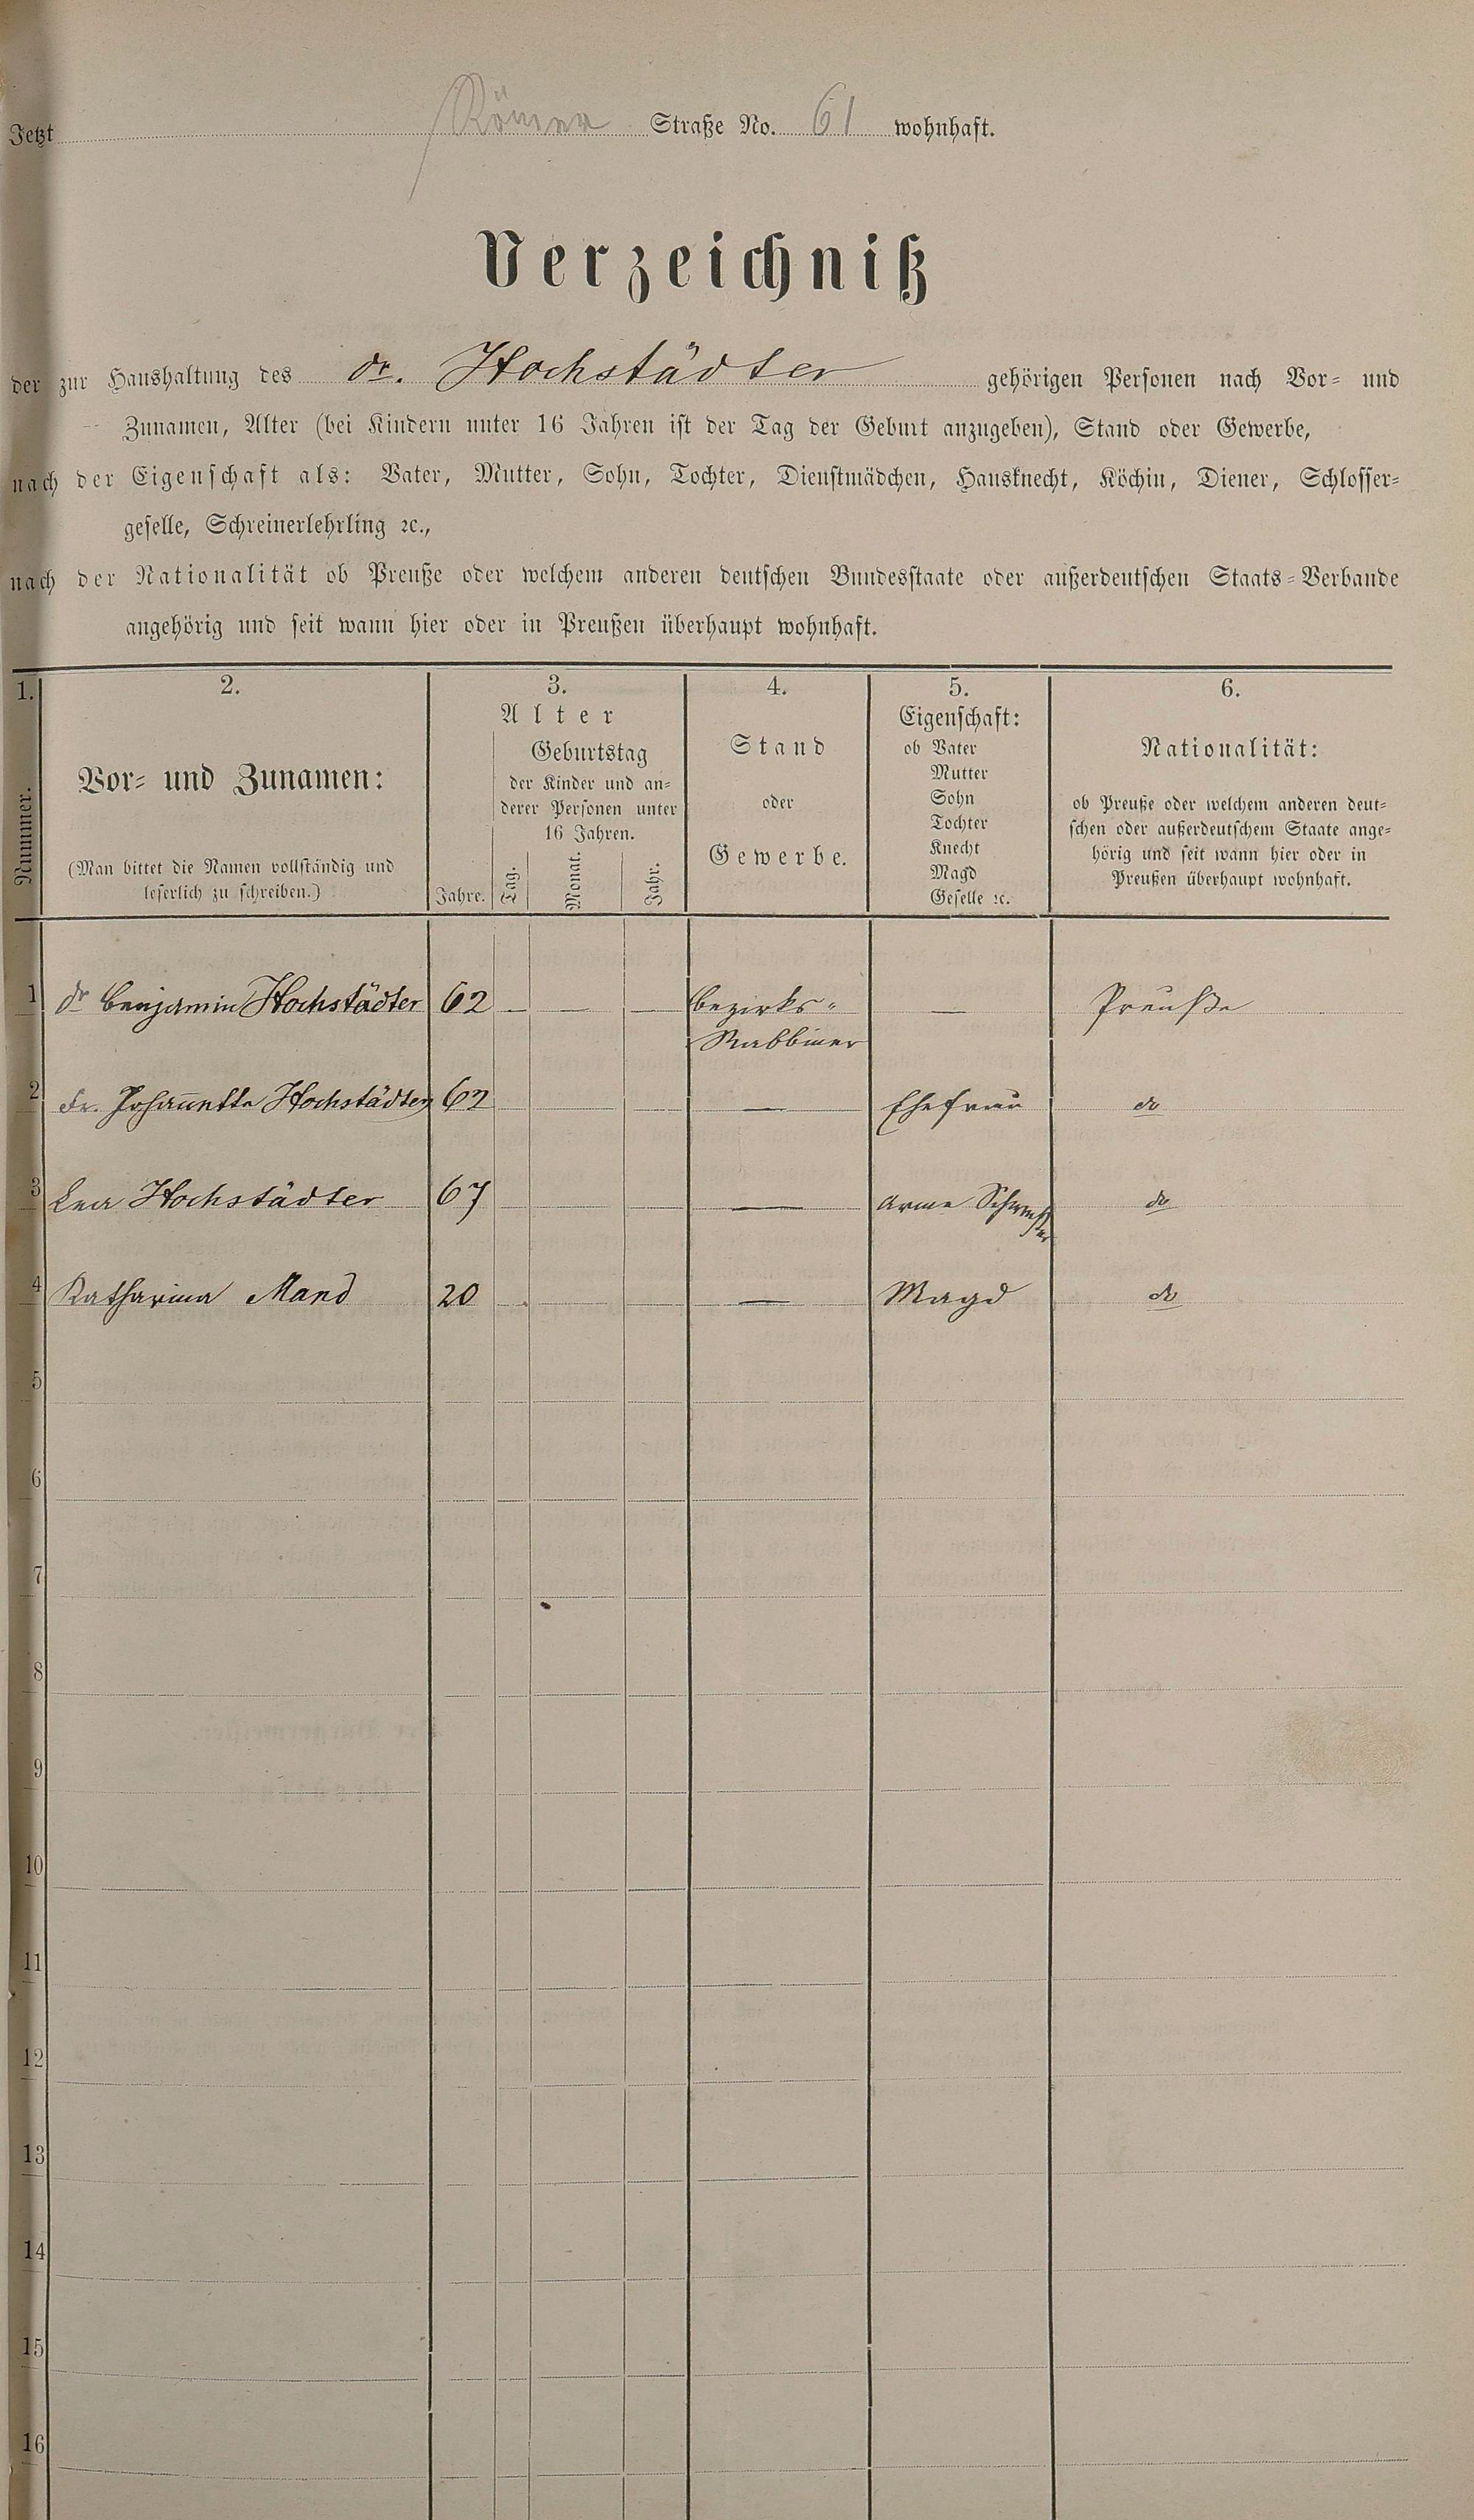 Jetzt Römer Straße No. 61 wohnhaft.
Verzeichniß
der zur Haushaltung des dr. Hochstädter gehörigen Personen nach Vor- und
Zunamen, Alter (bei Kindern unter 16 Jahren ist der Tag der Geburt anzugeben), Stand oder Gewerbe,
nach der Eigenschaft als: Vater, Mutter, Sohn, Tochter, Dienstmädchen, Hausknecht, Köchin, Diener, Schlosser-
geselle, Schreinerlehrling ꝛc.,
nach der Nationalität ob Preuße oder welchem anderen deutschen Bundesstaate oder außerdeutschen Staats-Verbande
angehörig und seit wann hier oder in Preußen überhaupt wohnhaft.
1. 2. 3. 4. 5. 6.
Nummer.
Vor- und Zunamen:
(Man bittet die Namen vollständig und
leserlich zu schreiben.)
Alter
Jahre.
Geburtstag
der Kinder und an-
derer Personen unter
16 Jahren.
Tag. Monat. Jahr.
Stand
oder
Gewerbe.
Eigenschaft:
ob Vater
Mutter
Sohn
Tochter
Knecht
Magd
Geselle ꝛc.
Nationalität:
ob Preuße oder welchem anderen deut-
schen oder außerdeutschem Staate ange-
hörig und seit wann hier oder in
Preußen überhaupt wohnhaft.
1 dr Benjamin Hochstädter 62 — — — Bezirks- — Preuße
Rabbiner
2 Fr. Johannetta Hochstädter 62 — Ehefrau do
3 Lea Hochstädter 67 — arme Schwester do
4 Katharina Mand 20 — Magd do
5
6
7
8
9
10
11
12
13
14
15
16